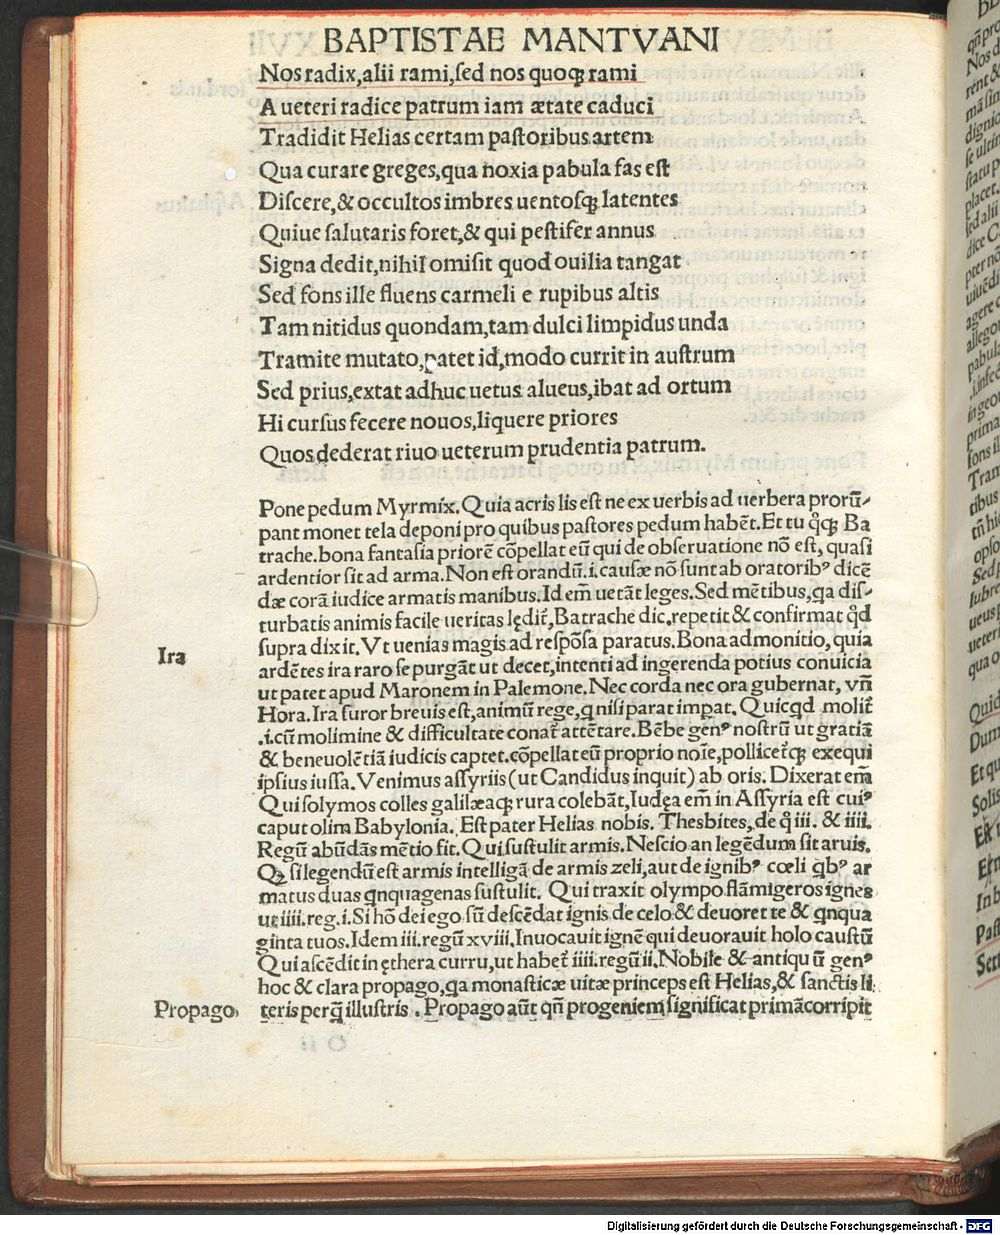 BAPTISTAE MANTVANI
Nos radix,alii rami,sed nos quoqȝ rami
A ueteri radice patrum iam ætate caduci
Tradidit Helias certam pastoribus artem
Qua curare greges,qua noxia pabula fas est
Discere,& occultos imbres uentosqȝ latentes
Quiue salutaris foret,& qui pestifer annus
Signa dedit,nihil omisit quod ouilia tangat.
Sed fons ille fluens carmeli e rupibus altis
Tam nitidus quondam,tam dulci limpidus unda
Tramite mutato,patet id,modo currit in austrum
Sed prius,extat adhuc uetus alueus,ibat ad ortum
Hi cursus fecere nouos,liquere priores
Quos dederat riuo ueterum prudentia patrum.
Pone pedum Myrmix.Quia acris lis est ne ex uerbis ad uerbera prorū-
pant monet tela deponi pro quibus pastores pedum habēt.Et tu q̊qȝ Ba
trache.bona fantasia priorē cōpellat eū qui de obseruatione nō est, quasi
ardentior sit ad arma.Non est orandū.i.causæ nō sunt ab oratoribꝰ dicē
dæ corā iudice armatis manibus.Id em̄ uetāt leges.Sed mētibus,qa dis-
turbatis animis facile ueritas lędit᷑,Batrache dic.repetit & confirmat qd̊
supra dixit.Vt uenias magis ad respōsa paratus.Bona admonitio, quia
Ira
ardētes ira raro se purgāt ut decet,intenti ad ingerenda potius conuicia
ut patet apud Maronem in Palemone.Nec corda nec ora gubernat, vn̄
Hora.Ira furor breuis est,animū rege,q nisi parat impat. Quicqd molit᷑
.i.cū molimine & difficultate conat᷑ attētare.Bēbe genꝰ nostrū ut gratiā
& beneuolētiā iudicis captet.cōpellat eū proprio noīe,pollicet᷑qȝ exequi
ipsius iussa.Venimus assyriis (ut Candidus inquit) ab oris. Dixerat em̄
Qui solymos colles galilæaqȝ rura colebāt,Iudęa em̄ in Assyria est cuiꝰ
caput olim Babylonia. Est pater Helias nobis. Thesbites, de q̊ iii. & iiii.
Regū abūdās mētio fit. Qui sustulit armis. Nescio an legēdum sit aruis.
Qȝ si legendū est armis intelligā de armis zeli,aut de ignibꝰ cœli qbꝰ ar
matus duas qnquagenas sustulit. Qui traxit olympo flāmigeros ignes
ut iiii.reg.i.Si hō dei ego sū descēdat ignis de celo & deuoret te & qnqua
ginta tuos.Idem iii.regū xviii.Inuocauit ignē qui deuorauit holo caustū
Qui ascēdit in ęthera curru,ut habet᷑ iiii.regū ii.Nobile & antiquū genꝰ
hoc & clara propago,qa monasticæ uitæ princeps est Helias,& sanctis li
Propago
teris perq̄ illustris . Propago aūt qn̄ progeniem significat primā corripit
Digitalisierung gefördert durch die Deutsche Forschungsgemeinschaft - DFG